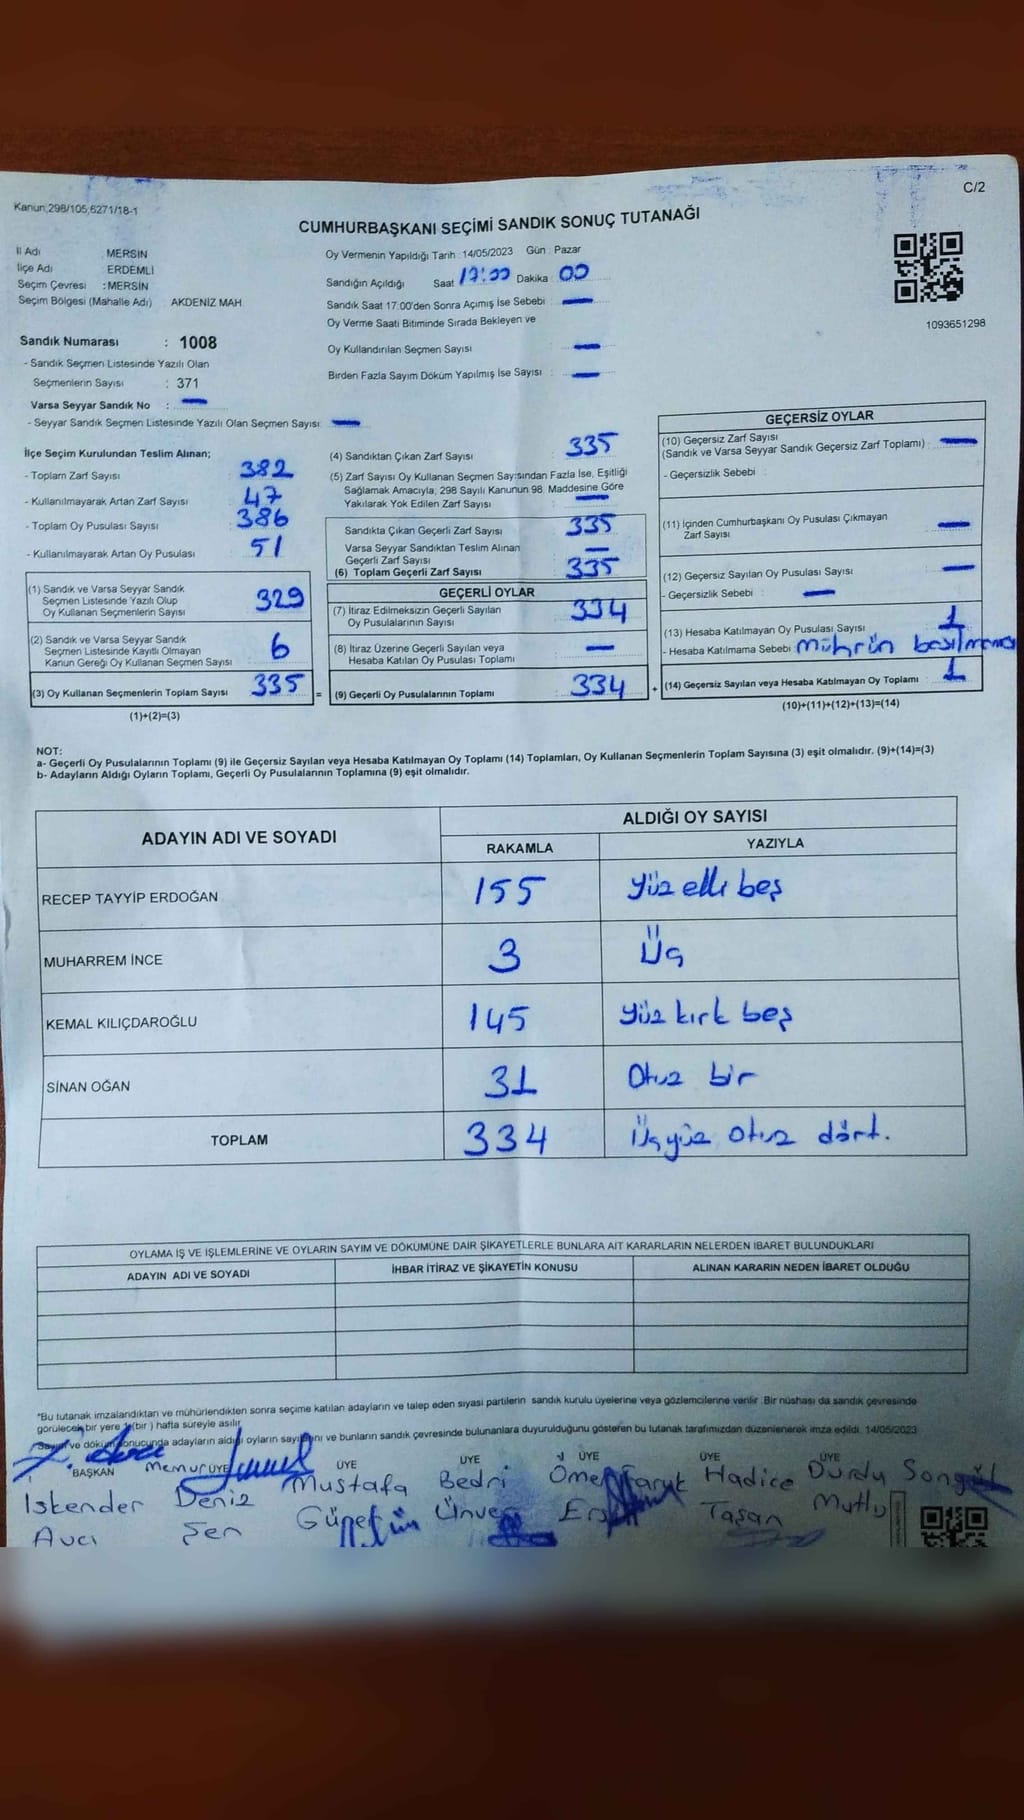 C/2
Kanun;298/105,6271/18-1
CUMHURBAŞKANI SEÇİMİ SANDIK SONUÇ TUTANAĞI
İl Adı MERSİN
İlçe Adı ERDEMLİ
Seçim Çevresi : MERSİN
Seçim Bölgesi (Mahalle Adı) AKDENİZ MAH.
Sandık Numarası : 1008
- Sandık Seçmen Listesinde Yazılı Olan
Seçmenlerin Sayısı : 371
Varsa Seyyar Sandık No : —
- Seyyar Sandık Seçmen Listesinde Yazılı Olan Seçmen Sayısı: —
Oy Vermenin Yapıldığı Tarih : 14/05/2023 Gün : Pazar
Sandığın Açıldığı Saat 17:00 Dakika : 00
Sandık Saat 17.00'den Sonra Açımış İse Sebebi : —
Oy Verme Saati Bitiminde Sırada Bekleyen ve
Oy Kullandırılan Seçmen Sayısı : —
Birden Fazla Sayım Döküm Yapılmış İse Sayısı : —
1093651298
İlçe Seçim Kurulundan Teslim Alınan;
- Toplam Zarf Sayısı 382
- Kullanılmayarak Artan Zarf Sayısı 47
- Toplam Oy Pusulası Sayısı 386
- Kullanılmayarak Artan Oy Pusulası 51
(1) Sandık ve Varsa Seyyar Sandık
Seçmen Listesinde Yazılı Olup
Oy Kullanan Seçmenlerin Sayısı 329
(2) Sandık ve Varsa Seyyar Sandık
Seçmen Listesinde Kayıtlı Olmayan
Kanun Gereği Oy Kullanan Seçmen Sayısı 6
(3) Oy Kullanan Seçmenlerin Toplam Sayısı 335 =
(1)+(2)=(3)
(4) Sandıktan Çıkan Zarf Sayısı 335
(5) Zarf Sayısı Oy Kullanan Seçmen Sayısından Fazla İse, Eşitliği
Sağlamak Amacıyla, 298 Sayılı Kanunun 98. Maddesine Göre
Yakılarak Yok Edilen Zarf Sayısı : —
Sandıkta Çıkan Geçerli Zarf Sayısı 335
Varsa Seyyar Sandıktan Teslim Alınan
Geçerli Zarf Sayısı —
(6) Toplam Geçerli Zarf Sayısı 335
GEÇERLİ OYLAR
(7) İtiraz Edilmeksizin Geçerli Sayılan
Oy Pusulalarının Sayısı 334
(8) İtiraz Üzerine Geçerli Sayılan veya
Hesaba Katılan Oy Pusulası Toplamı —
(9) Geçerli Oy Pusulalarının Toplamı 334 +
GEÇERSİZ OYLAR
(10) Geçersiz Zarf Sayısı
(Sandık ve Varsa Seyyar Sandık Geçersiz Zarf Toplamı) : —
- Geçersizlik Sebebi :
(11) İçinden Cumhurbaşkanı Oy Pusulası Çıkmayan
Zarf Sayısı —
(12) Geçersiz Sayılan Oy Pusulası Sayısı : —
- Geçersizlik Sebebi : —
(13) Hesaba Katılmayan Oy Pusulası Sayısı 1
- Hesaba Katılmama Sebebi: mührün basılmaması
(14) Geçersiz Sayılan veya Hesaba Katılmayan Oy Toplamı : 1
(10)+(11)+(12)+(13)=(14)
NOT:
a- Geçerli Oy Pusulalarının Toplamı (9) ile Geçersiz Sayılan veya Hesaba Katılmayan Oy Toplamı (14) Toplamları, Oy Kullanan Seçmenlerin Toplam Sayısına (3) eşit olmalıdır. (9)+(14)=(3)
b- Adayların Aldığı Oyların Toplamı, Geçerli Oy Pusulalarının Toplamına (9) eşit olmalıdır.
ADAYIN ADI VE SOYADI
ALDIĞI OY SAYISI
RAKAMLA YAZIYLA
RECEP TAYYİP ERDOĞAN 155 Yüz elli beş
MUHARREM İNCE 3 Üç
KEMAL KILIÇDAROĞLU 145 Yüz kırk beş
SİNAN OĞAN 31 Otuz bir
TOPLAM 334 Üçyüz otuz dört.
OYLAMA İŞ VE İŞLEMLERİNE VE OYLARIN SAYIM VE DÖKÜMÜNE DAİR ŞİKAYETLERLE BUNLARA AİT KARARLARIN NELERDEN İBARET BULUNDUKLARI
ADAYIN ADI VE SOYADI İHBAR İTİRAZ VE ŞİKAYETİN KONUSU ALINAN KARARIN NEDEN İBARET OLDUĞU
*Bu tutanak imzalandıktan ve mühürlendikten sonra seçime katılan adayların ve talep eden siyasi partilerin sandık kurulu üyelerine veya gözlemcilerine verilir. Bir nüshası da sandık çevresinde
görülecek bir yere 1 (bir) hafta süreyle asılır.
Sayım ve döküm sonucunda adayların aldığı oyların sayısını ve bunların sandık çevresinde bulunanlara duyurulduğunu gösteren bu tutanak tarafımızdan düzenlenerek imza edildi. 14/05/2023
BAŞKAN Memur ÜYE ÜYE ÜYE ÜYE ÜYE ÜYE
İskender Deniz Mustafa Bedri Ömer Faruk Hadice Durdu Songül
Avcı Şen Ünver Taşan Mutlu